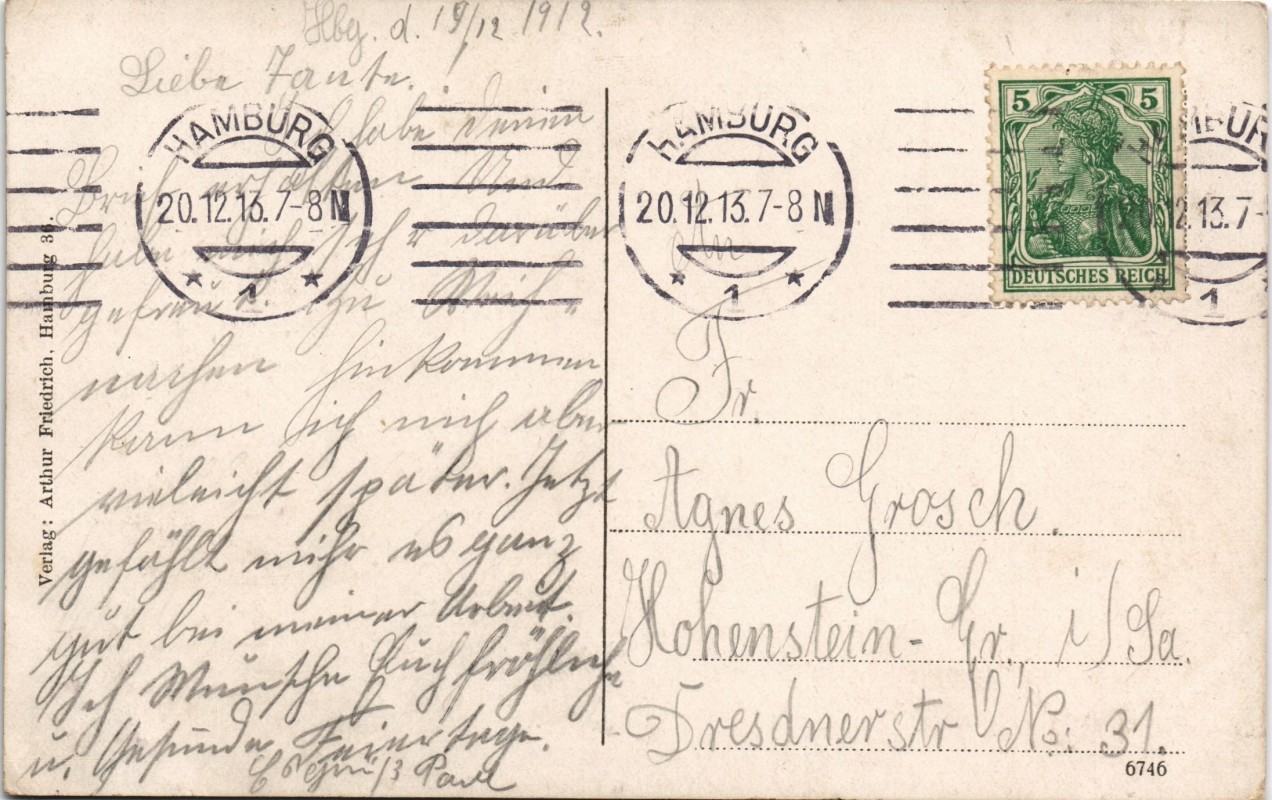 Hbg. d. 19/12 1912.
Liebe Tante.
Ich habe deinen
Brief erhalten und
habe mich sehr darüber
gefreut. Zu Weih-
nachen hinkommen
kann ich nich aber
vieleicht später. Jetzt
gefählt mihr es ganz
gut bei meiner Arbeit.
Ich Wünsche Euch fröhliche
u. Gesunde Feiertage.
Es Grüßt Paul
Verlag: Arthur Friedrich, Hamburg 36.
HAMBURG
20.12.13.7-8 N
* 1 *
HAMBURG
20.12.13.7-8 N
* 1 *
5 5
DEUTSCHES REICH
MBUR
12.13.7-
1
An
Fr.
Agnes Grosch.
Hohenstein-Er. i/Sa.
Dresdnerstr No: 31.
6746